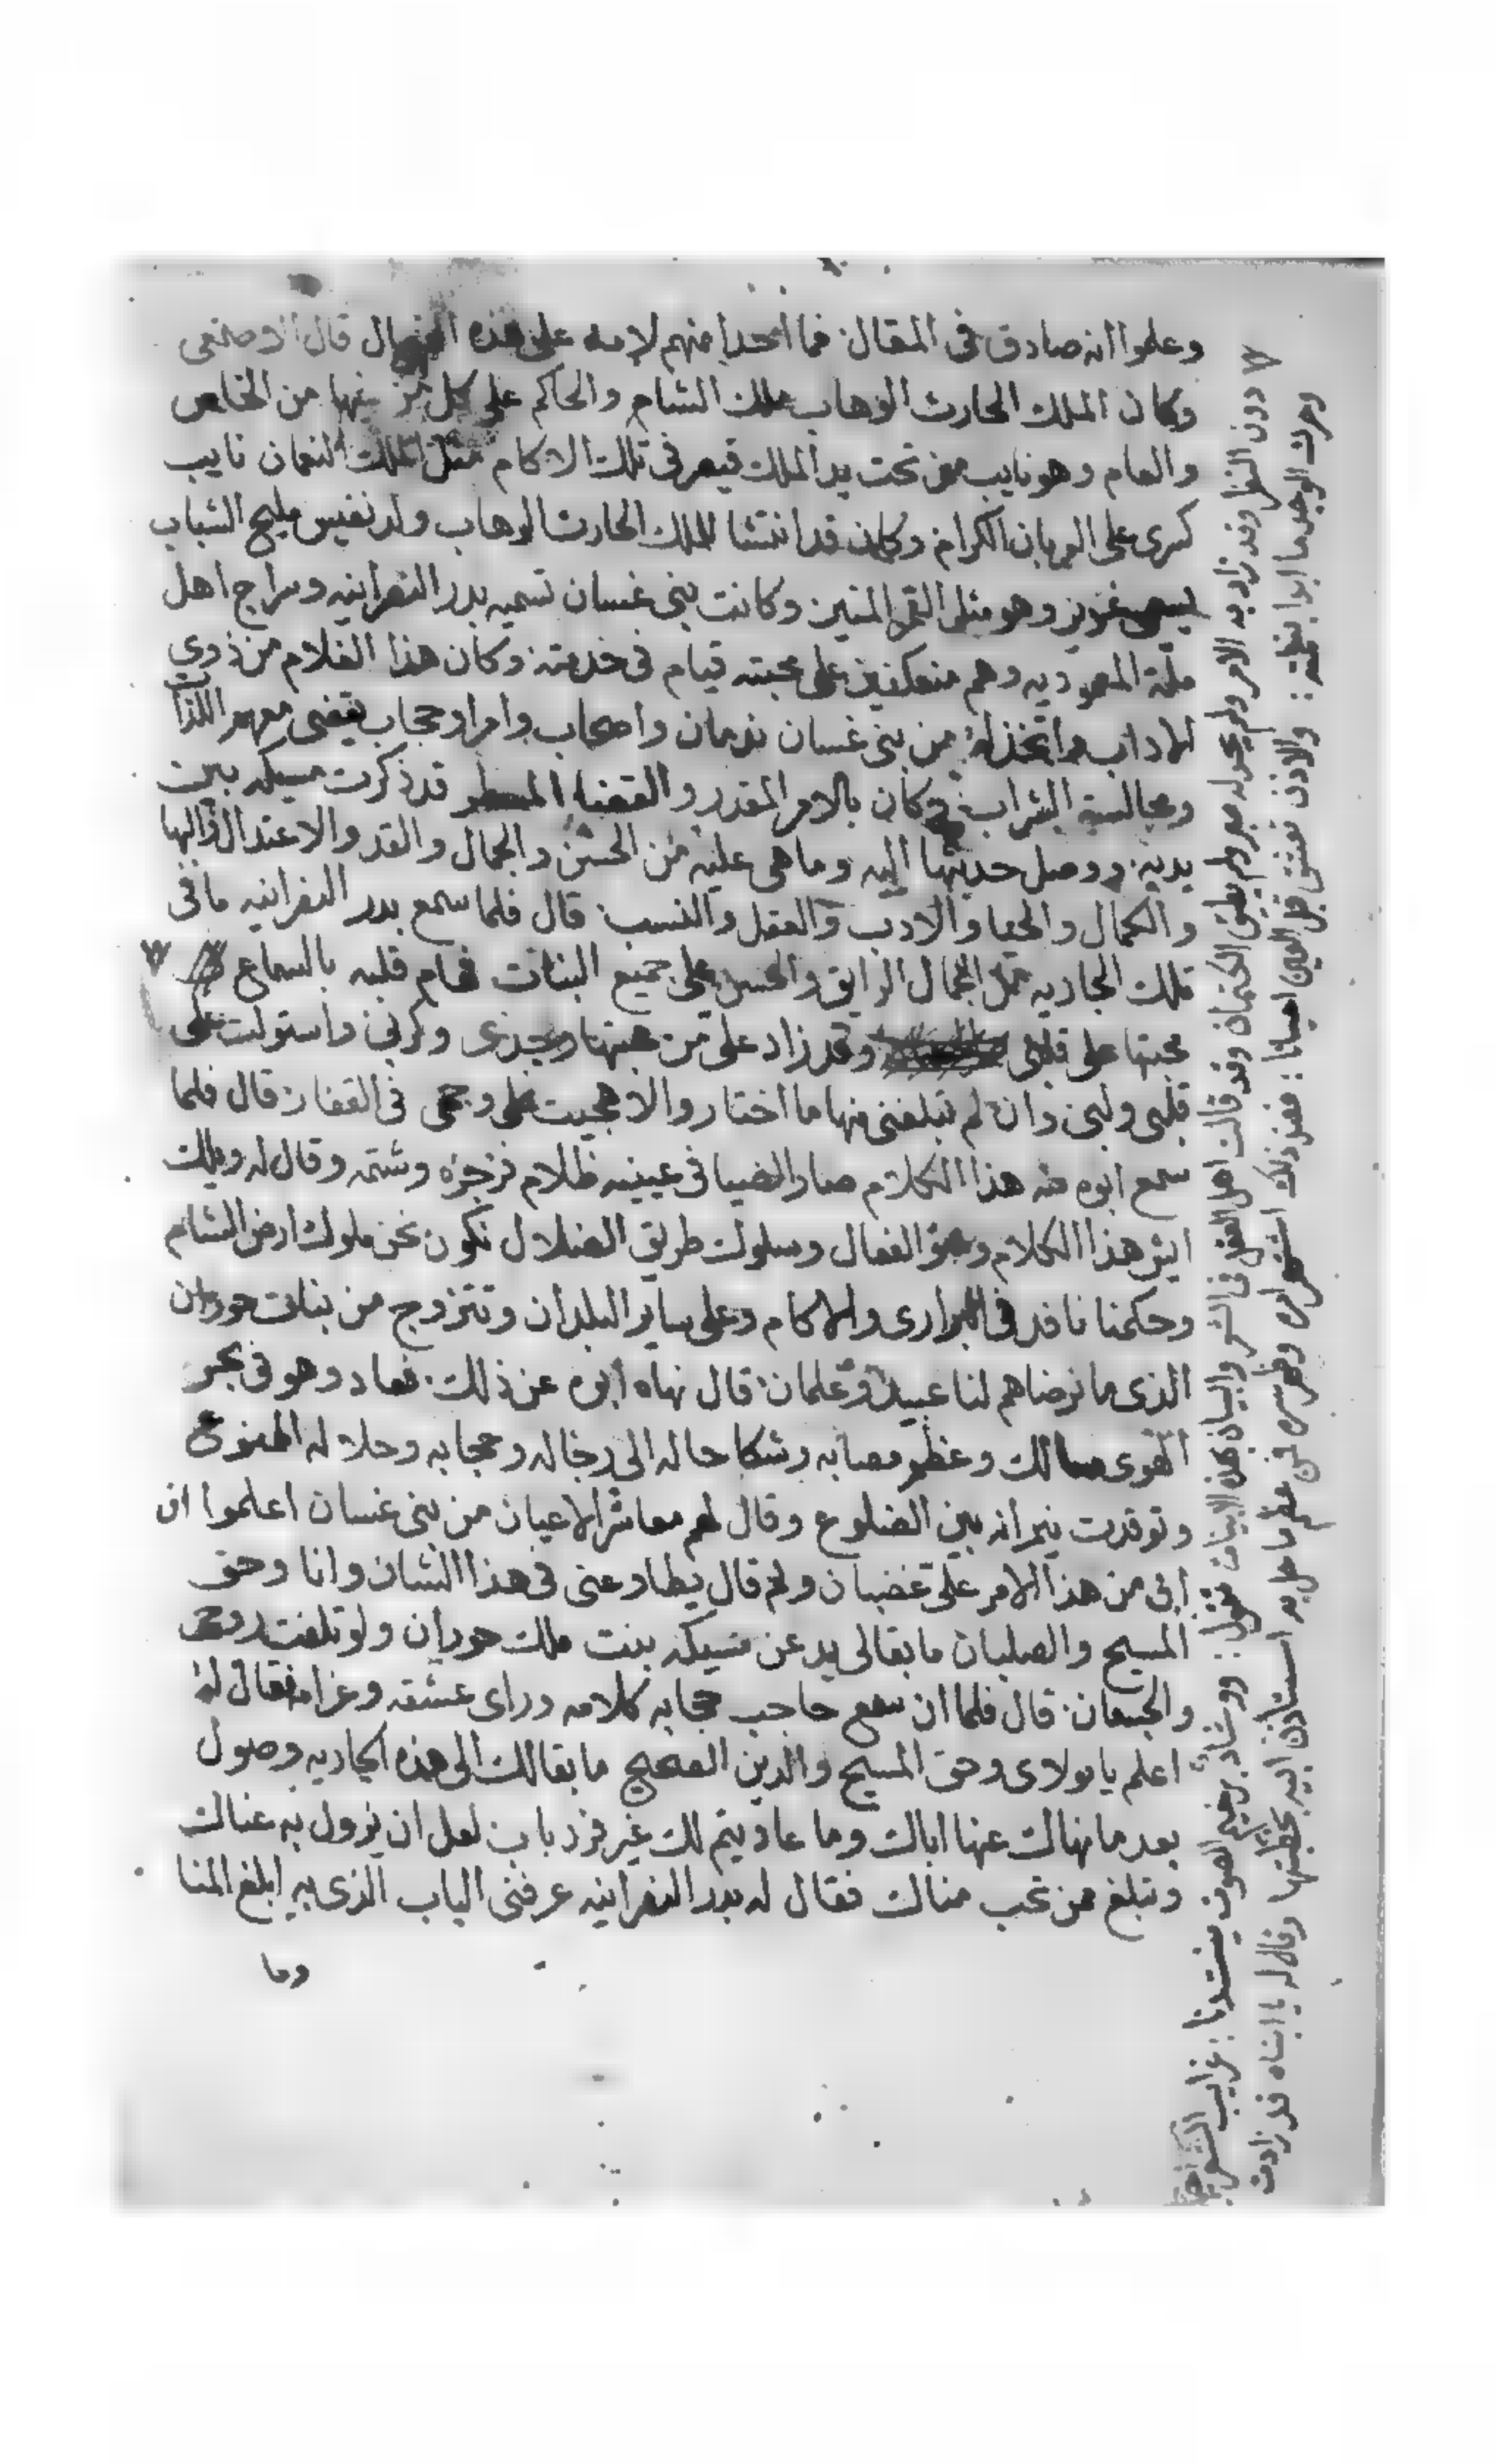 وعلموا انه صادق فى المقال فما احدا منهم لامه على هذه قال الاصمعى
وكان الملك الحارث الوهاب ملك الشام والحاكم على كل من فيها من الخاص
والعام وهو نايب من تحت يد الملك قيصر فى تلك الاكام مثل الملك النعمان نايب
كسرى على العربان الكرام وكان قد انتشا للملك الحارث الوهاب ولد نفيس مليح الشباب
وهو مثل القمر المنير وكانت بنى غسان تسميه بدر النصرانيه وسراج اهل
ملة المعموديه وهم منعكفين على محبته قيام فى خدمته وكان هذا الغلام من ذوى
الاداب واتخذ له من بنى غسان ندمان واصحاب وامرا وحجاب يقضى معهم اللذات
ومجالسة الشراب وكان بالامر المقدر والقضا المسطر قد ذكرت مسيكه بين
يديه ووصل حديثها اليه وما هى عليه من الحسن والجمال والقد والاعتدال والبها
والكمال والحيا والادب والعقل والنسب قال فلما سمع بدر النصرانيه ما فى
تلك الجاريه من الجمال الرايق والحسن على جميع البنات فهام قلبه بالسماع
محبتها على قلبى وقد زاد على من محبتها وجدى وكربى واستولت على
قلبى ولبى وان لم تبلغنى منها ما اختار والا هجيت على وجهى فى القفار قال فلما
سمع ابوه منه هذا الكلام صار الضيا فى عينيه ظلام فزجره وشتمه وقال له ويلك
ايش هذا الكلام وهذا الفعال وسلوك طريق الضلال نكون نحن ملوك ارض الشام
وحكمنا نافد فى البرارى والاكام وعلى ساير البلدان وتتزوج من بنات حوران
الذى ما نرضاهم لنا عبيد وغلمان قال نهاه ابوه عن ذلك فعاد وهو فى بحر
الهوى هالك وعظم مصابه وشكا حاله الى رجاله وحجابه وحلا له الهنوع
وتوقدت نيرانه بين الضلوع وقال لهم معاشر الاعيان من بنى غسان اعلموا ان
ابى من هذا الامر على غضبان ولم قال يطاوعنى فى هذا الشان وانا وحق
المسيح والصلبان ما بقالى بد عن مسيكه بنت ملك حوران ولو تلفت روحى
والجسمان قال فلما ان سمع حاجب حجابه كلامه وراى عشقه وغرامه فقال له
اعلم يا مولاى وحق المسيح والدين الصحيح ما بقالك الى هذه الجاريه وصول
بعد ما نهاك عنها اباك وما عاد يتم لك غير فرد باب لعل ان يزول به عناك
وتبلغ من تحب مناك فقال له بدر النصرانيه عرفنى الباب الذى به ابلغ المنا
وما
دون النظر وقد زاد به الامر ولم يجد له صبر ولم يطيق الكتمان وقد قالت اهل الفضل فى الشعر والبيان هذه الابيات تقول: ورشاد رخيم الصوت ينشدنا: غرايب الشعر
وحرك الوجد ما ابدا بنغمته: والاذن تعشق قبل العين احيانا: فعند ذلك اشتهر امره وظهر سره فمن عظم ما حل به استاذن ابيه بخطبتها وقال له يا ابتاه قد زادت